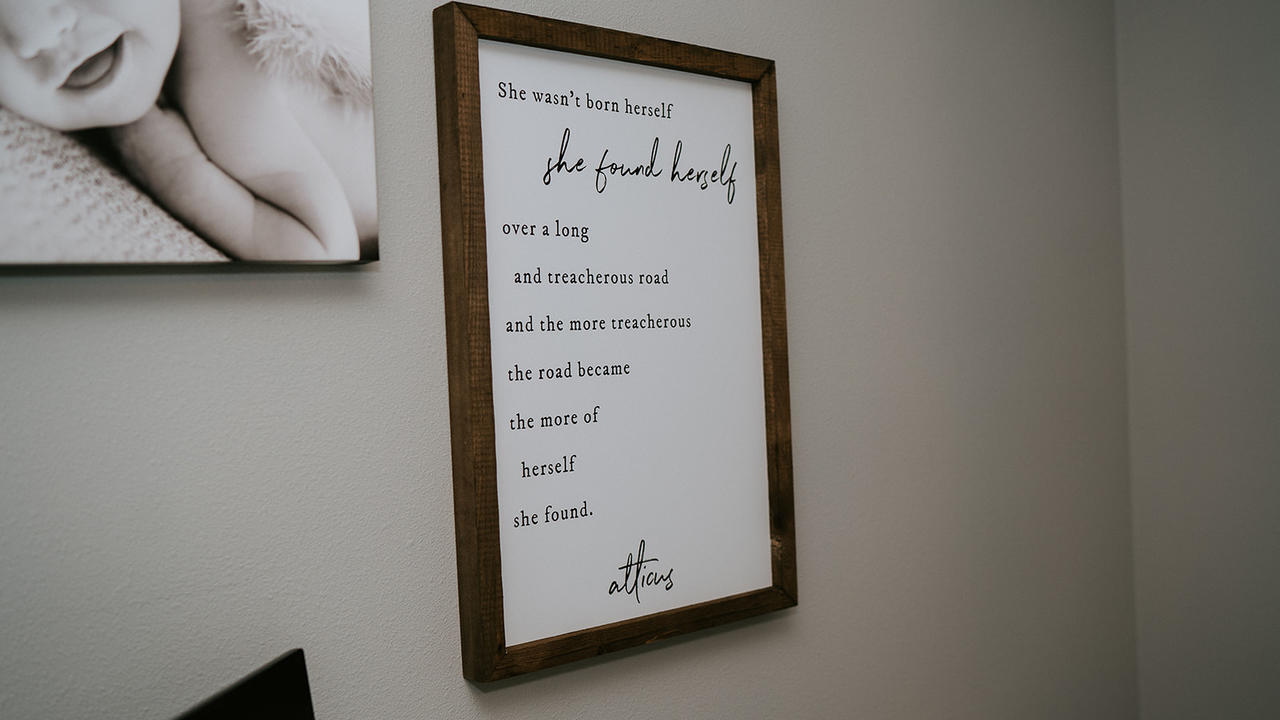 She wasn't born herself
she found herself
over a long
and treacherous road
and the more treacherous
the road became
the more of
herself
she found.
atticus